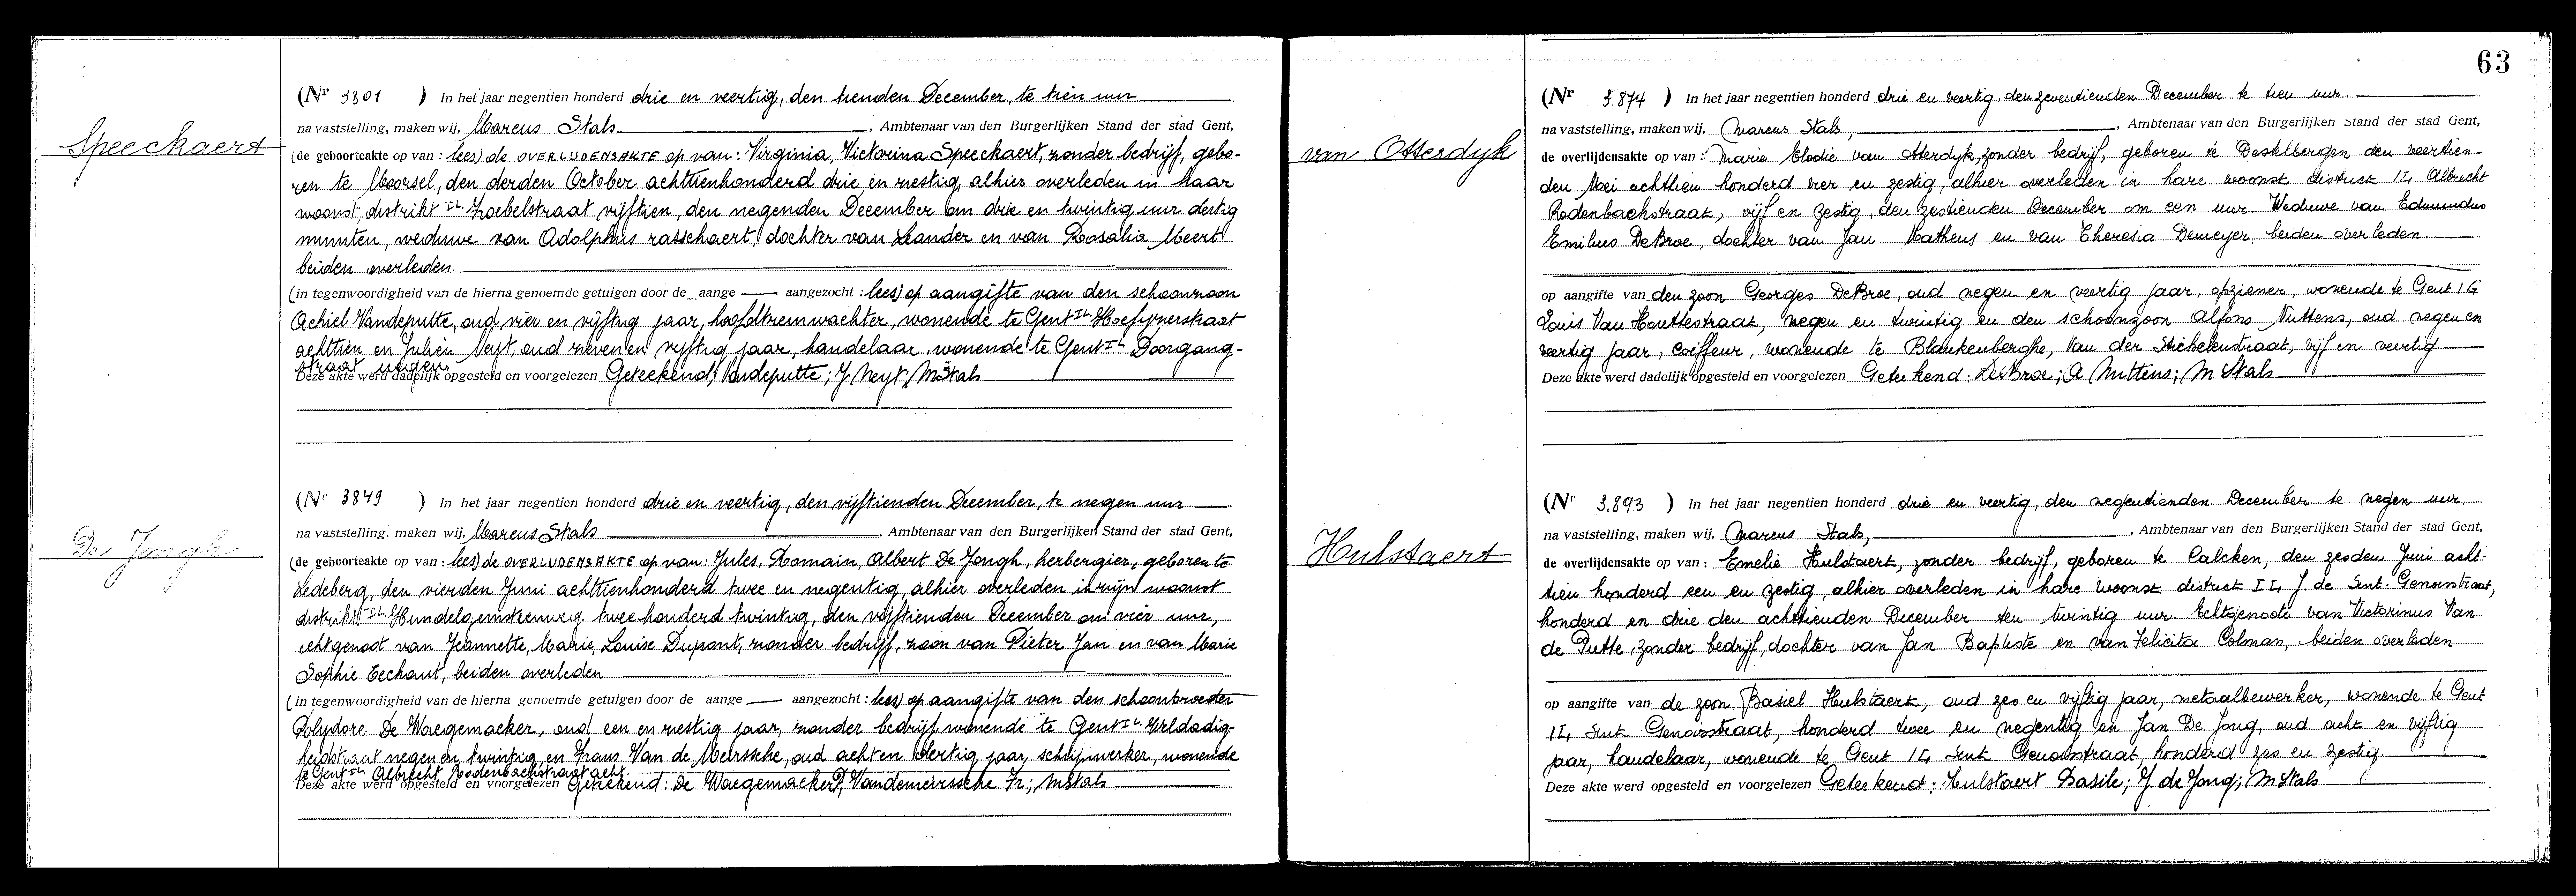 Speeckaert
(Nr 3801 ) In het jaar negentien honderd drie en veertig, den tienden December, te tien uur
na vaststelling, maken wij, Marcus Stals, Ambtenaar van den Burgerlijken Stand der stad Gent,
(de geboorteakte op van : lees) de OVERLIJDENSAKTE op van: Virginia, Victorina Speeckaert, zonder bedrijf, gebo-
ren te Moorsel, den derden October achttienhonderd drie en zestig, alhier overleden in haar
woonst, distrikt IL. Zoebelstraat vijftien, den negenden December om drie en twintig uur dertig
minuten, weduwe van Adolphus rasschaert, dochter van Leander en van Rosalia Meert
beiden overleden.
(in tegenwoordigheid van de hierna genoemde getuigen door de aange — aangezocht : lees) op aangifte van den schoonzoon
Achiel Vandeputte, oud vier en vijftig jaar, hoofdtreinwachter, wonende te Gent IL. Hoefijzerstraat
achttien en Julien Neyt, oud zeven en vijftig jaar, handelaar, wonende te Gent IL Doorgang-
straat negen.
Deze akte werd dadelijk opgesteld en voorgelezen Geteekend; Vandeputte; J Neyt; MStals
De Jongh
(Nr 3849 ) In het jaar negentien honderd drie en veertig, den vijftienden December, te negen uur
na vaststelling, maken wij, Marcus Stals, Ambtenaar van den Burgerlijken Stand der stad Gent,
(de geboorteakte op van : lees) de OVERLIJDENSAKTE op van: Jules, Romain, Albert De Jongh, herbergier, geboren te
Ledeberg, den vierden Juni achttienhonderd twee en negentig, alhier overleden in zijn woonst
distrikt IL. Hundelgemsteenweg twee honderd twintig, den vijftienden December om vier uur,
echtgenoot van Jeannette, Marie, Louise Dupont, zonder bedrijf, zoon van Pieter Jan en van Marie
Sophie Eechaut, beiden overleden
(in tegenwoordigheid van de hierna genoemde getuigen door de aange — aangezocht : lees) op aangifte van den schoonbroeder
Polydore De Waegemaeker, oud een en zestig jaar, zonder bedrijf, wonende te Gent IL. Weldadig-
heidstraat negen en twintig, en Frans Van de Meirssche, oud acht en dertig jaar, schrijnwerker, wonende
te Gent IL. Albrecht Rodenbachstraat acht.
Deze akte werd opgesteld en voorgelezen Geteekend: De WaegemaekerP; Vandemeirssche Fr; MStals
63
van Otterdyk
(Nr 3.874 ) In het jaar negentien honderd drie en veertig, den zeventienden December te tien uur.
na vaststelling, maken wij, Marcus Stals, Ambtenaar van den Burgerlijken Stand der stad Gent,
de overlijdensakte op van : Marie Elodie van Otterdyk, zonder bedrijf, geboren te Destelbergen den veertien-
den Mei achttien honderd vier en zestig, alhier overleden in hare woonst district IL Albrecht
Rodenbachstraat, vijf en zestig, den zestienden December om een uur Weduwe van Edmundus
Emilius DeBroe, dochter van Jan Matheus en van Theresia Demeyer, beiden overleden.
op aangifte van den zoon Georges DeBroe, oud negen en veertig jaar, opziener, wonende te Gent IG
Louis Van Houttestraat, negen en twintig en den schoonzoon Alfons Nuttens, oud negen en
veertig jaar, coiffeur, wonende te Blankenberghe, Van der Stichelenstraat, vijf en veertig
Deze akte werd dadelijk opgesteld en voorgelezen Geteekend: DeBroe; A Nuttens; M Stals
Hulstaert
(Nr 3.893 ) In het jaar negentien honderd drie en veertig, den negentienden December te negen uur.
na vaststelling, maken wij, Marcus Stals, Ambtenaar van den Burgerlijken Stand der stad Gent,
de overlijdensakte op van : Emelie Hulstaert, zonder bedrijf, geboren te Calcken, den zesden Juni acht-
tien honderd een en zestig, alhier overleden in hare woonst district IL, Sint. Genoisstraat,
honderd en drie den achttienden December ten twintig uur Echtgenoote van Victorinus Van
de Putte, zonder bedrijf, dochter van Jan Baptiste en van Felicita Colman, beiden overleden
op aangifte van de zoon Basiel Hulstaert, oud zes en vijftig jaar, metaalbewerker, wonende te Gent
IL, Sint Genoisstraat, honderd twee en negentig en Jan De Jong, oud acht en vijftig
jaar, handelaar, wonende te Gent IL Sint Genoisstraat, honderd zes en zestig.
Deze akte werd opgesteld en voorgelezen Geteekend: Hulstaert Basile; J. de Jong; M Stals